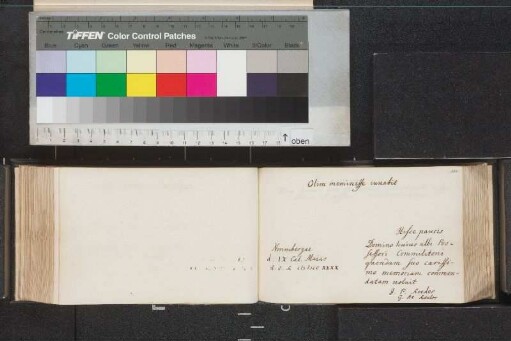 TIFFEN Color Control Patches
Blue Cyan Green Yellow Red Magenta White 3/Color Black
oben
Olim meminisse iuvabit
Hisce paucis
Domino huius albi Pos-
sessori Commilitoni
quondam suo carissi-
mo memoriam commen-
datam voluit
Norimbergae
d. IX Cal. Maias